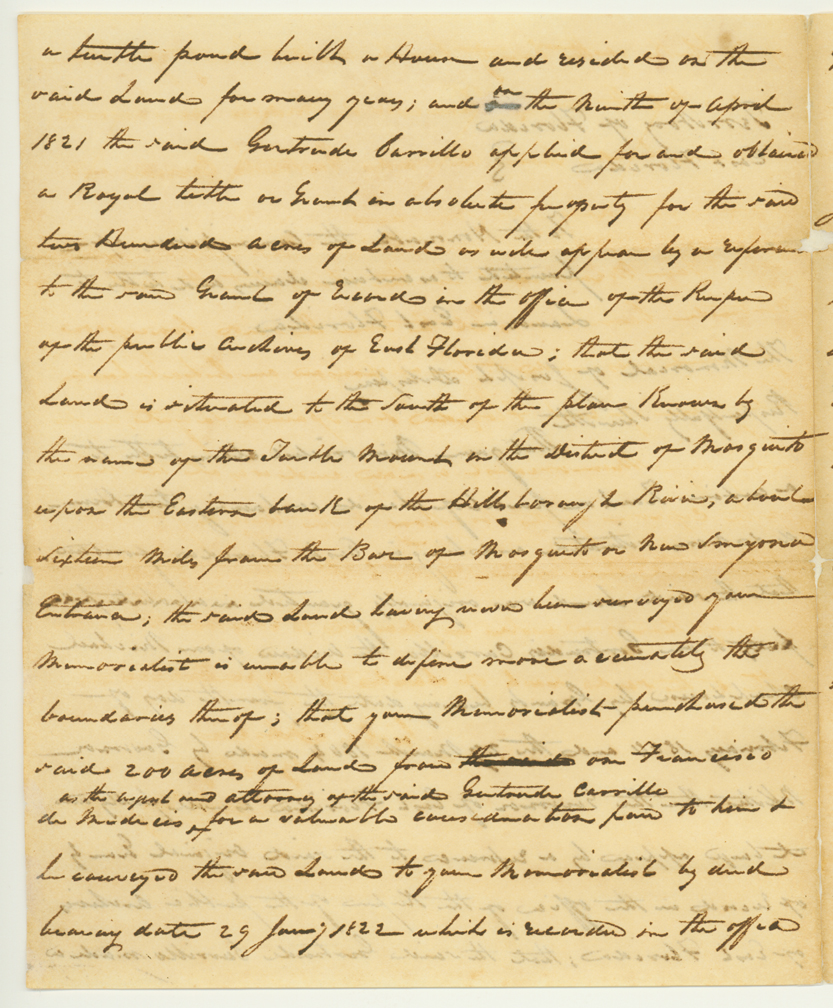 a turtle pond built a House and resided on the
said Land for many years; and on the Ninth of April
1821 the said Gertrude Carrillo applied for and obtained
a Royal title or Grant in absolute property for the said
two Hundred Acres of Land as will appear by a referance
to the said Grant of Record in the office of the Keeper
of the public Archives of East Florida; that the said
Land is situated to the South of the place Known by
the name of the Turtle Mount in the District of Mosquito
upon the Eastern bank of the Hillsborough River, about
Sixteen Miles from the Bar of Mosquito or New Smyrna
Entrance; the said Land having never been surveyed your
Memorialist is unable to define more accurately the
boundaries thereof; that your Memorialist purchased the
said 200 acres of Land from the said one Francisco
as the agent and attorney of the said Gertrude Carrillo
de Medicis, for a valuable consideration paid to him &
he conveyed the said Land to your Memorialist by deed
bearing date 29 Jany 1822 which is recorded in the office